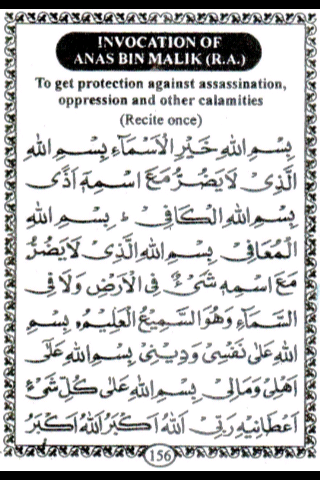 INVOCATION OF
ANAS BIN MALIK (R.A.)
To get protection against assassination,
oppression and other calamities
(Recite once)
بِسْمِ اللهِ خَيْرِ الْاَسْمَآءِ بِسْمِ اللهِ
الَّذِىْ لَا يَضُرُّ مَعَ اسْمِهٖ اَذًى
بِسْمِ اللهِ الْكَافِىْ ط بِسْمِ اللهِ
الْمُعَافِىْ بِسْمِ اللهِ الَّذِىْ لَا يَضُرُّ
مَعَ اسْمِهٖ شَىْءٌ فِى الْاَرْضِ وَلَا فِى
السَّمَآءِ وَهُوَ السَّمِيْعُ الْعَلِيْمُ ٥ بِسْمِ
اللهِ عَلٰى نَفْسِىْ وَدِيْنِىْ بِسْمِ اللهِ عَلٰى
اَهْلِىْ وَمَالِىْ بِسْمِ اللهِ عَلٰى كُلِّ شَىْءٍ
اَعْطَانِيْهِ رَبِّىْ اَللهُ اَكْبَرُ اَللهُ اَكْبَرُ
156